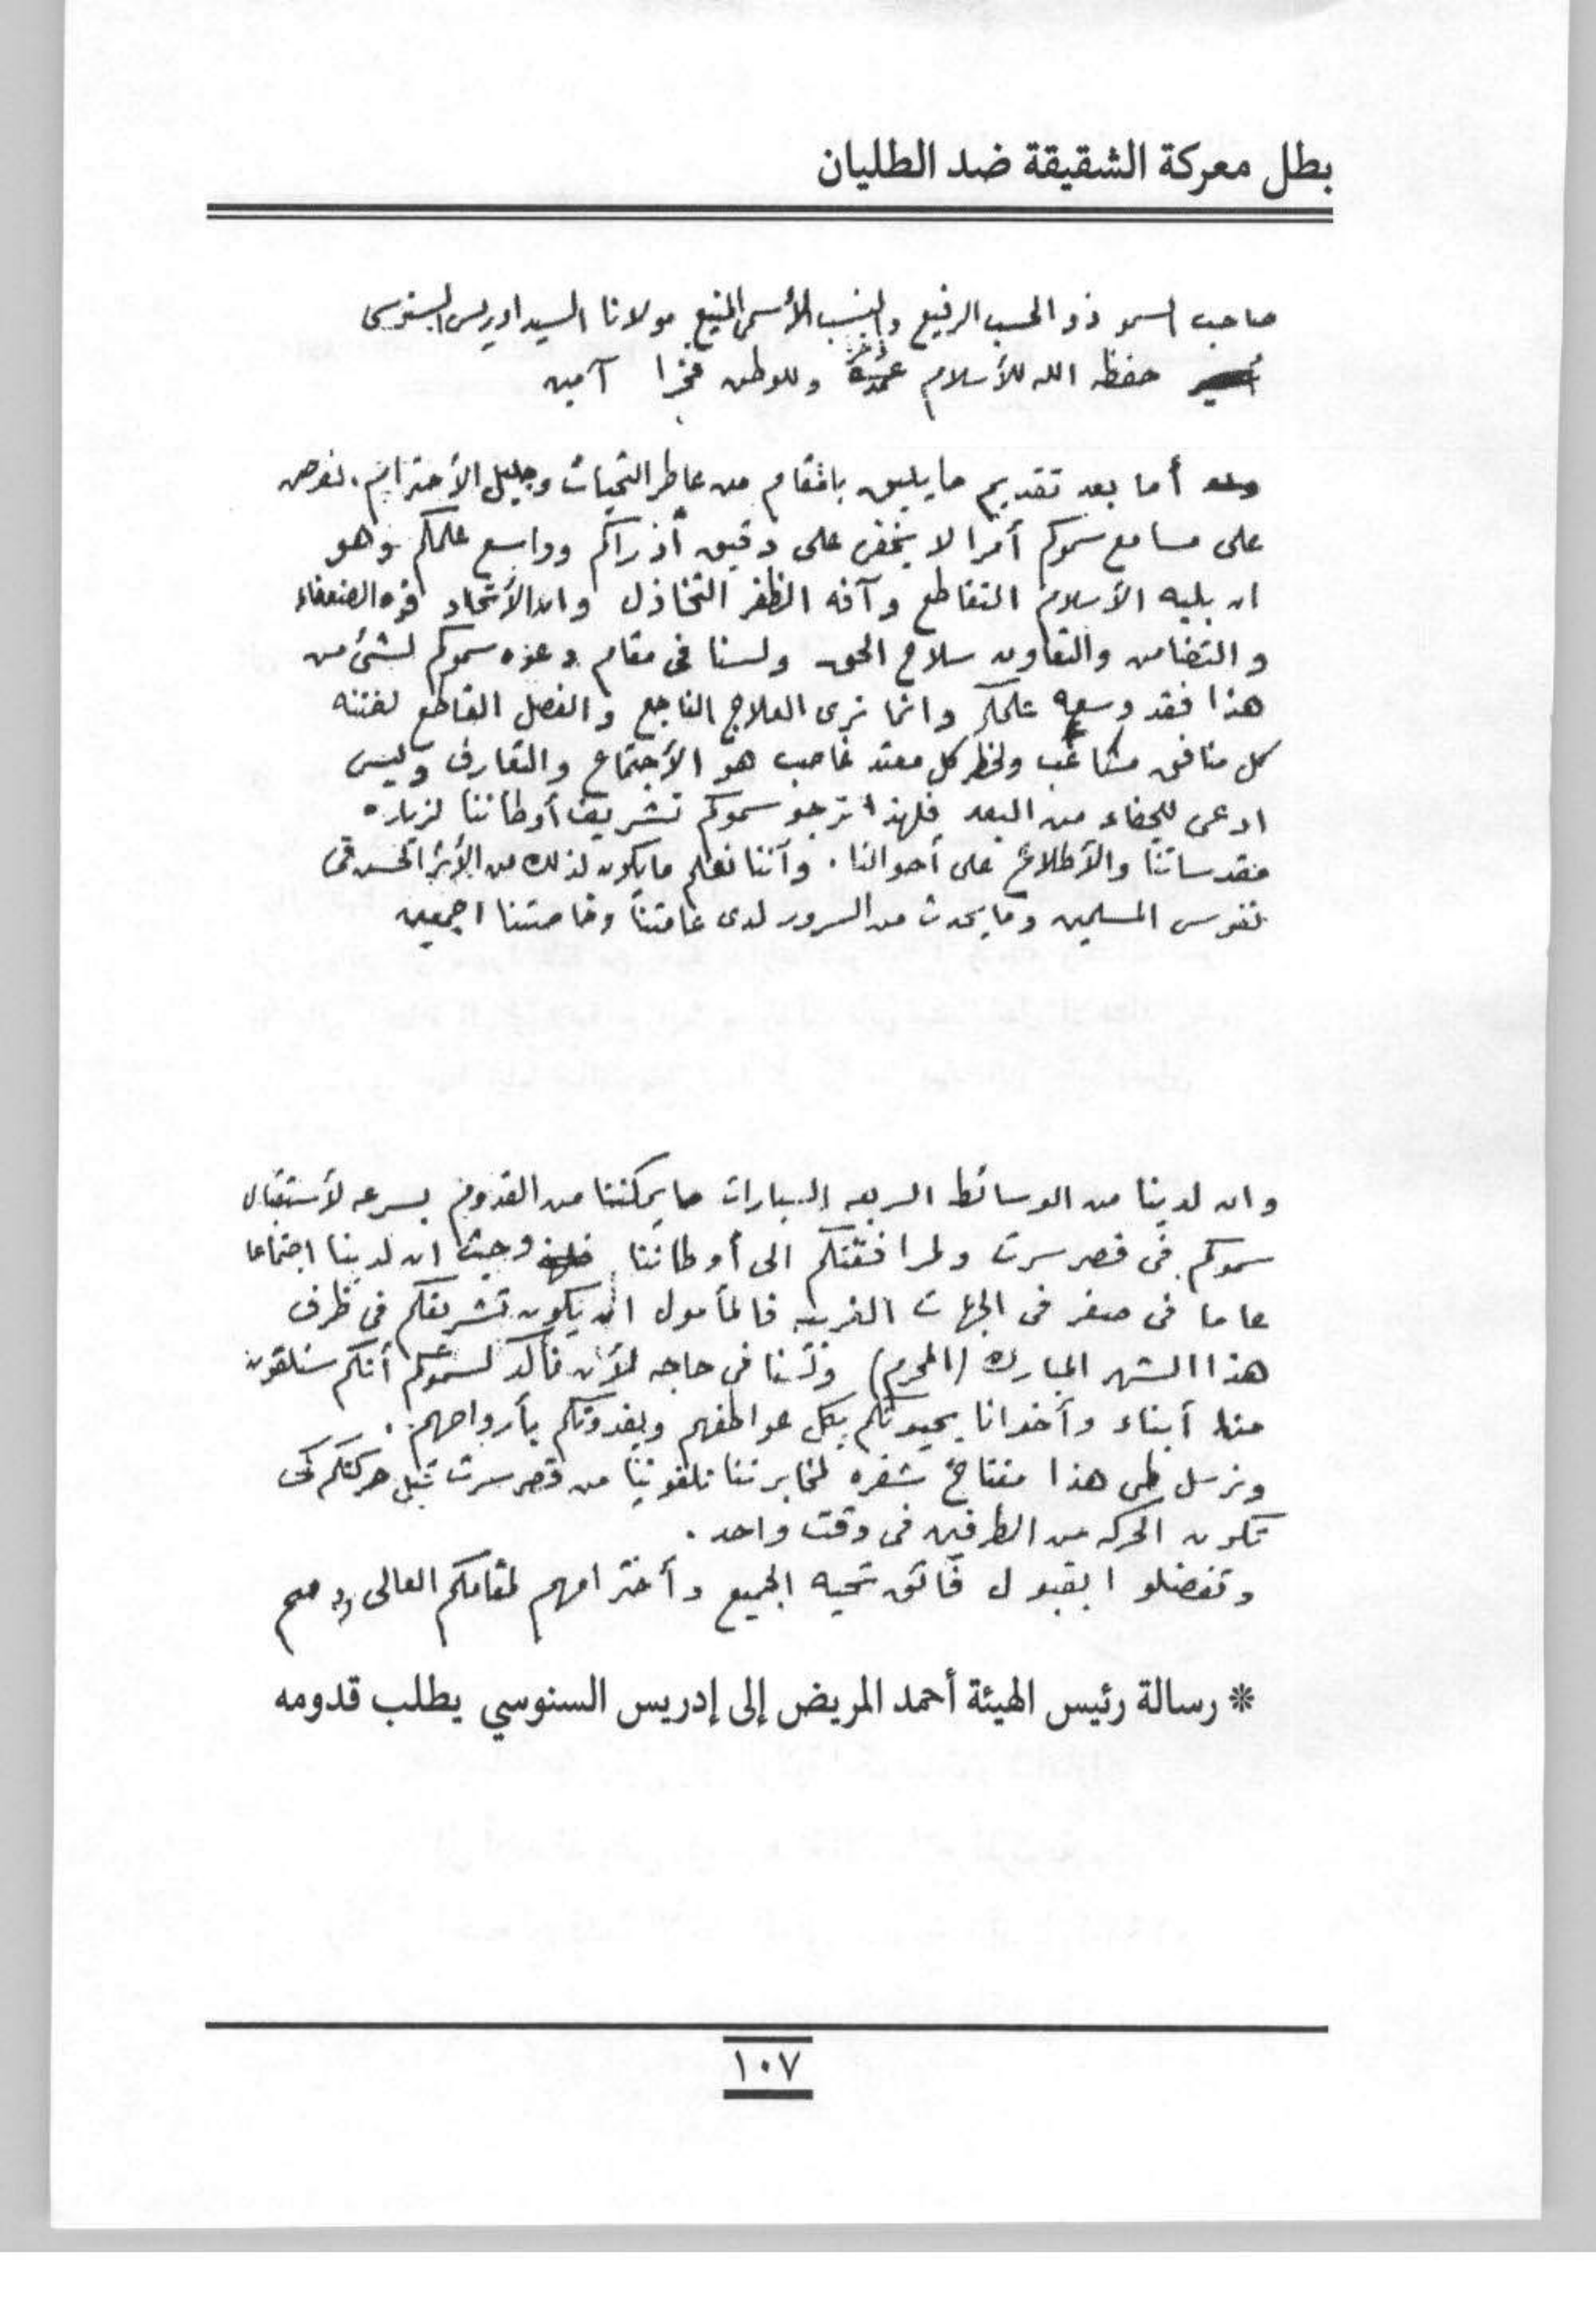 بطل معركة الشقيقة ضد الطليان
صاحب السمو ذو الحسب الرفيع والنسب الأسمى المنيع مولانا السيد ادريس السنوسى
حفظه الله للأسلام وللوطن فخرا آمين
أما بعد تقديم ما يليق بالمقام من عاطر التحيات وجليل الأحترام. نعرض
على مسامع سموكم أمرا لا يخفى على دقيق أدراكم وواسع علمكم وهو
ان بليه الأسلام التقاطع وآفه الظفر التخاذل وان الأتحاد قوه الضعفاء
والتضامن والتعاون سلاح الحق ولسنا فى مقام دعوه سموكم لشئ من
هذا فقد وسعه علمكم وانما نرى العلاج الناجع والفصل القاطع لفتنه
كل منافق مشاغب ولخطر كل معتد غاصب هو الأجتماع والتعارف وليس
ادعى للجفاء من البعد فلهذا نرجو سموكم تشريف أوطاننا لزياره
مقدساتنا والأطلاع على أحوالنا. وأننا نعلم مايكون لذلك من الأثر الحسن فى
نفوس المسلمين ومايحدث من السرور لدى عامتنا وخاصتنا اجمعين
وان لدينا من الوسائط السريعه السيارات مايمكننا من القدوم بسرعه لأستقبال
سموكم فى قصر سرت ولمرافقتكم الى أوطاننا وحيث ان لدينا اجتماعا
عاما فى صفر فى الجهات الغربيه فالمأمول ان يكون تشريفكم فى ظرف
هذا الشهر المبارك (المحرم) ولسنا فى حاجه لأن نأكد لسموكم أنكم ستلقون
منا أبناء وأخوانا يحيونكم بكل عواطفهم ويفدونكم بأرواحهم.
ونرسل طى هذا مفتاح شفره لمخابرتنا تلفونيا من قصر سرت قبل حركتكم كى
تكون الحركه من الطرفين فى وقت واحد.
وتفضلو ا بقبول فائق تحيه الجميع وأحترامهم لمقامكم العالى
* رسالة رئيس الهيئة أحمد المريض إلى إدريس السنوسي يطلب قدومه
١٠٧